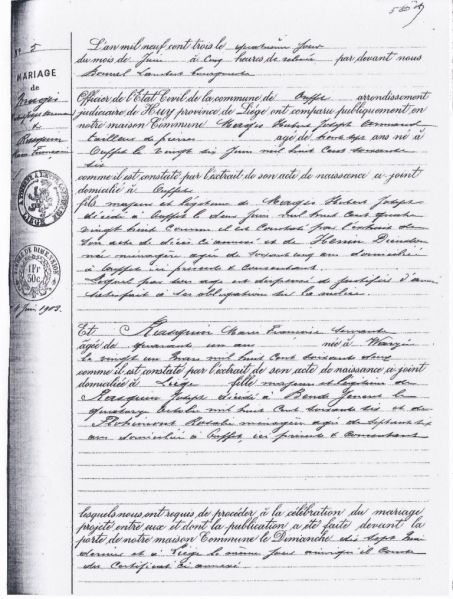 L'an mil neuf cent trois le quatrième jour
du mois de Juin à Cinq heures de relevée par devant nous
Officier de l'État Civil de la commune de Ouffet arrondissement
judiciaire de Huy province de Liége ont comparu publiquement en
notre maison Commune Magis Hubert Joseph Armand
tailleur de pierres âgé de trente six ans né à
Ouffet le vingt six Juin mil huit Cent soixante
six
comme il est constaté par l'extrait de son acte de naissance ci-joint
domicilié à Ouffet
fils majeur et légitime de Magis Hubert Joseph
décédé à Ouffet le deux Juin mil huit Cent quatre
vingt huit Comme il est Constaté par l'extrait de
son acte de décès ci annexé et de
née ménagère agée de soixante cinq ans domiciliée
à Ouffet ici présente et Consentant
Lequel par son age est dispensé de justifier d'avoir
satisfait à ses obligations sur la milice
Et Rasquin Marie Françoise Servante
âgée de quarante un ans née à Warzée
le vingt un Mars mil huit Cent soixante deux
comme il est constaté par l'extrait de son acte de naissance ci joint
domiciliée à Liége fille majeure et légitime de
Rasquin Joseph décédé à Bende Jenneret le
quatorze octobre mil huit Cent soixante dix et de
Rosalie ménagère agée de septante six
ans domiciliée à Ouffet, ici présente et Consentant
lesquels nous ont requis de procéder à la célébration du mariage
projeté entre eux et dont la publication a été faite devant la
porte de notre maison Commune le Dimanche dix sept Mai
dernier et à Liége le même Jour ainsi qu'il Conste
du Certificat ci annexé
N° 5
MARIAGE
de
Magis
&
Rasquin
LIEGE
1 Fr
50c
Juin 1903.